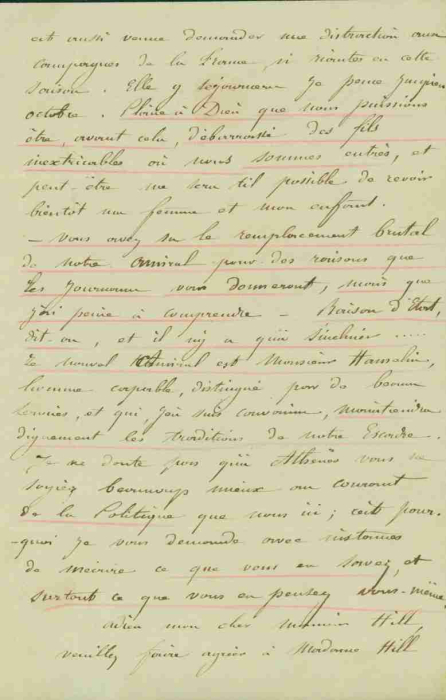 est aussi venue demander une distraction aux
campagnes de la France, si riantes en cette
saison. Elle y séjournera je pense jusqu'en
octobre. Plaise à Dieu que nous puissions
être, avant cela, débarrassé des fils
inextricables où nous sommes entrés, et
peut-être me sera t'il possible de revoir
bientôt ma femme et mon enfant.
– Vous avez su le remplacement brutal
de notre amiral pour des raisons que
les journaux vous donneront, mais que
j'ai peine à comprendre – Raison d'Etat,
dit-on, et il n'y a qu'à s'incliner .....
Le nouvel Amiral est Monsieur Hamelin,
homme capable, distingué par de beaux
services, et qui, j'en suis convaincu, maintiendra
dignement les traditions de notre Escadre.
Je ne doute pas qu'à Athènes vous ne
soyiez beaucoup mieux au courant
de la Politique que nous ici ; c'est pour-
-quoi je vous demande avec instances
de m'écrire ce que vous en savez, et
surtout ce que vous en pensez vous-même
adieu mon cher monsieur Hill,
veuillez faire agréer à Madame Hill